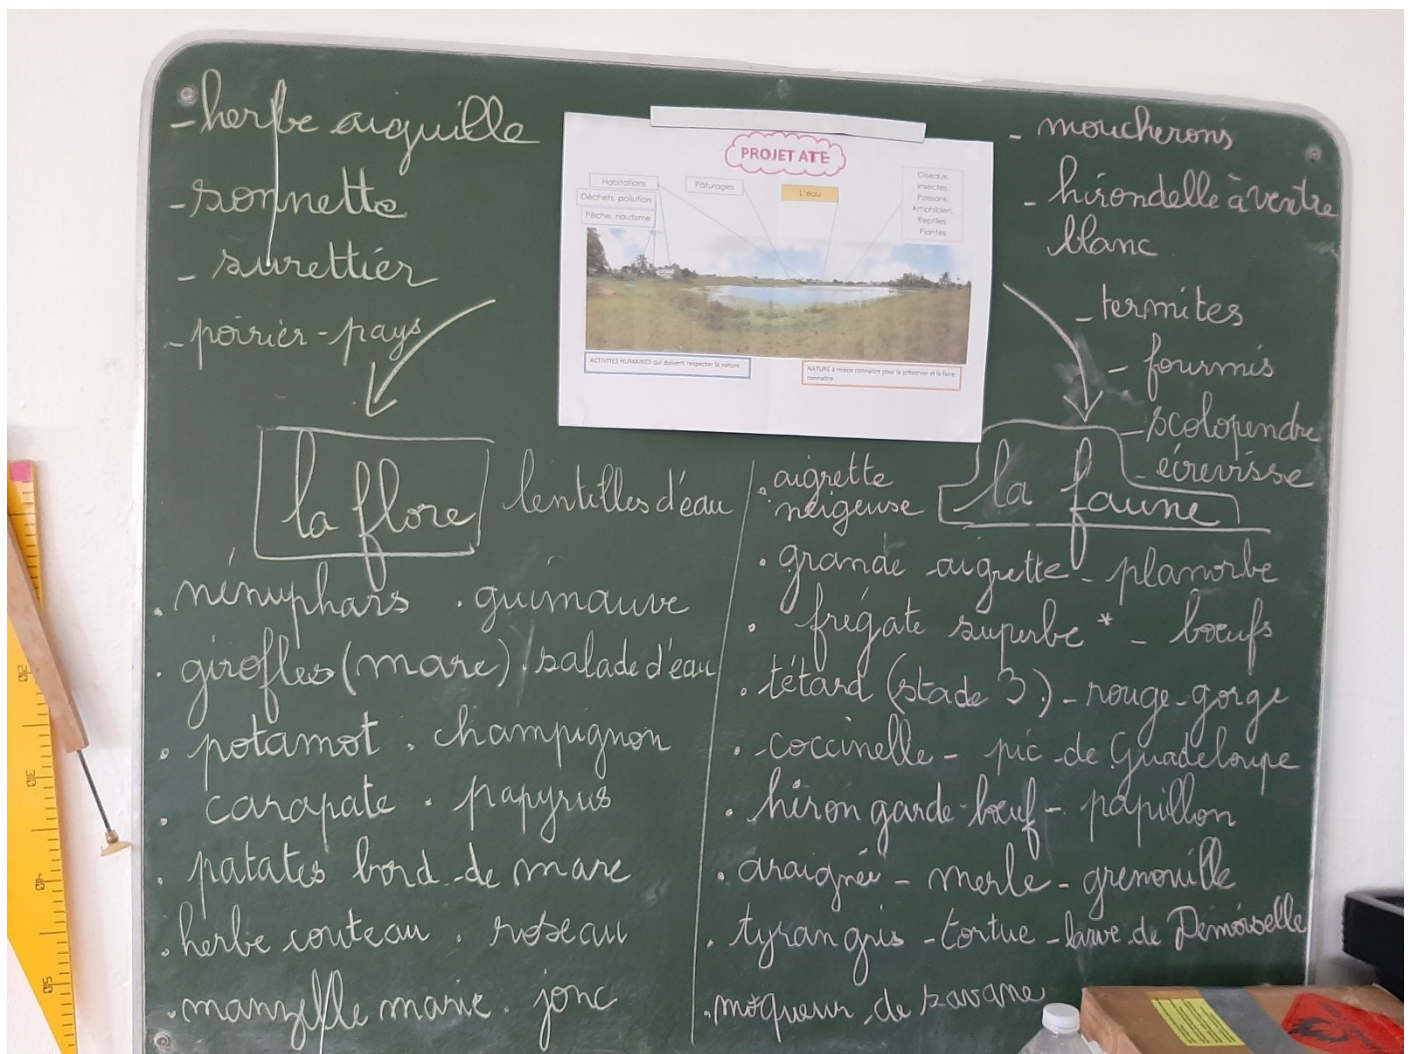 - herbe aiguille
- sonnette
- surettier
- poirier-pays
PROJET ATE
Habitations
Déchets, pollution
Pêche, nautisme
Pâturages
L'eau
Oiseaux,
Insectes
Poissons,
Amphibien,
Reptiles,
Plantes
ACTIVITES HUMAINES qui doivent respecter la nature
NATURE à mieux connaitre pour la préserver et la faire
connaitre.
- moucherons
- hirondelle à ventre
blanc
- termites
- fourmis
- scolopendre
- écrevisse
la flore
lentilles d'eau
. nénuphars . guimauve
. girofles (mare) . salade d'eau
. potamot . champignon
. carapate . papyrus
. patates bord de mare
. herbe couteau . roseau
. manzelle marie . jonc
la faune
. aigrette
neigeuse
. grande aigrette - planorbe
. frégate superbe * - bœufs
. tétard (stade 3) - rouge-gorge
. coccinelle - pic de Guadeloupe
. héron garde-bœuf - papillon
. araignée - merle - grenouille
. tyran gris - tortue - larve de Demoiselle
. moqueur de savane
20
30
40
50